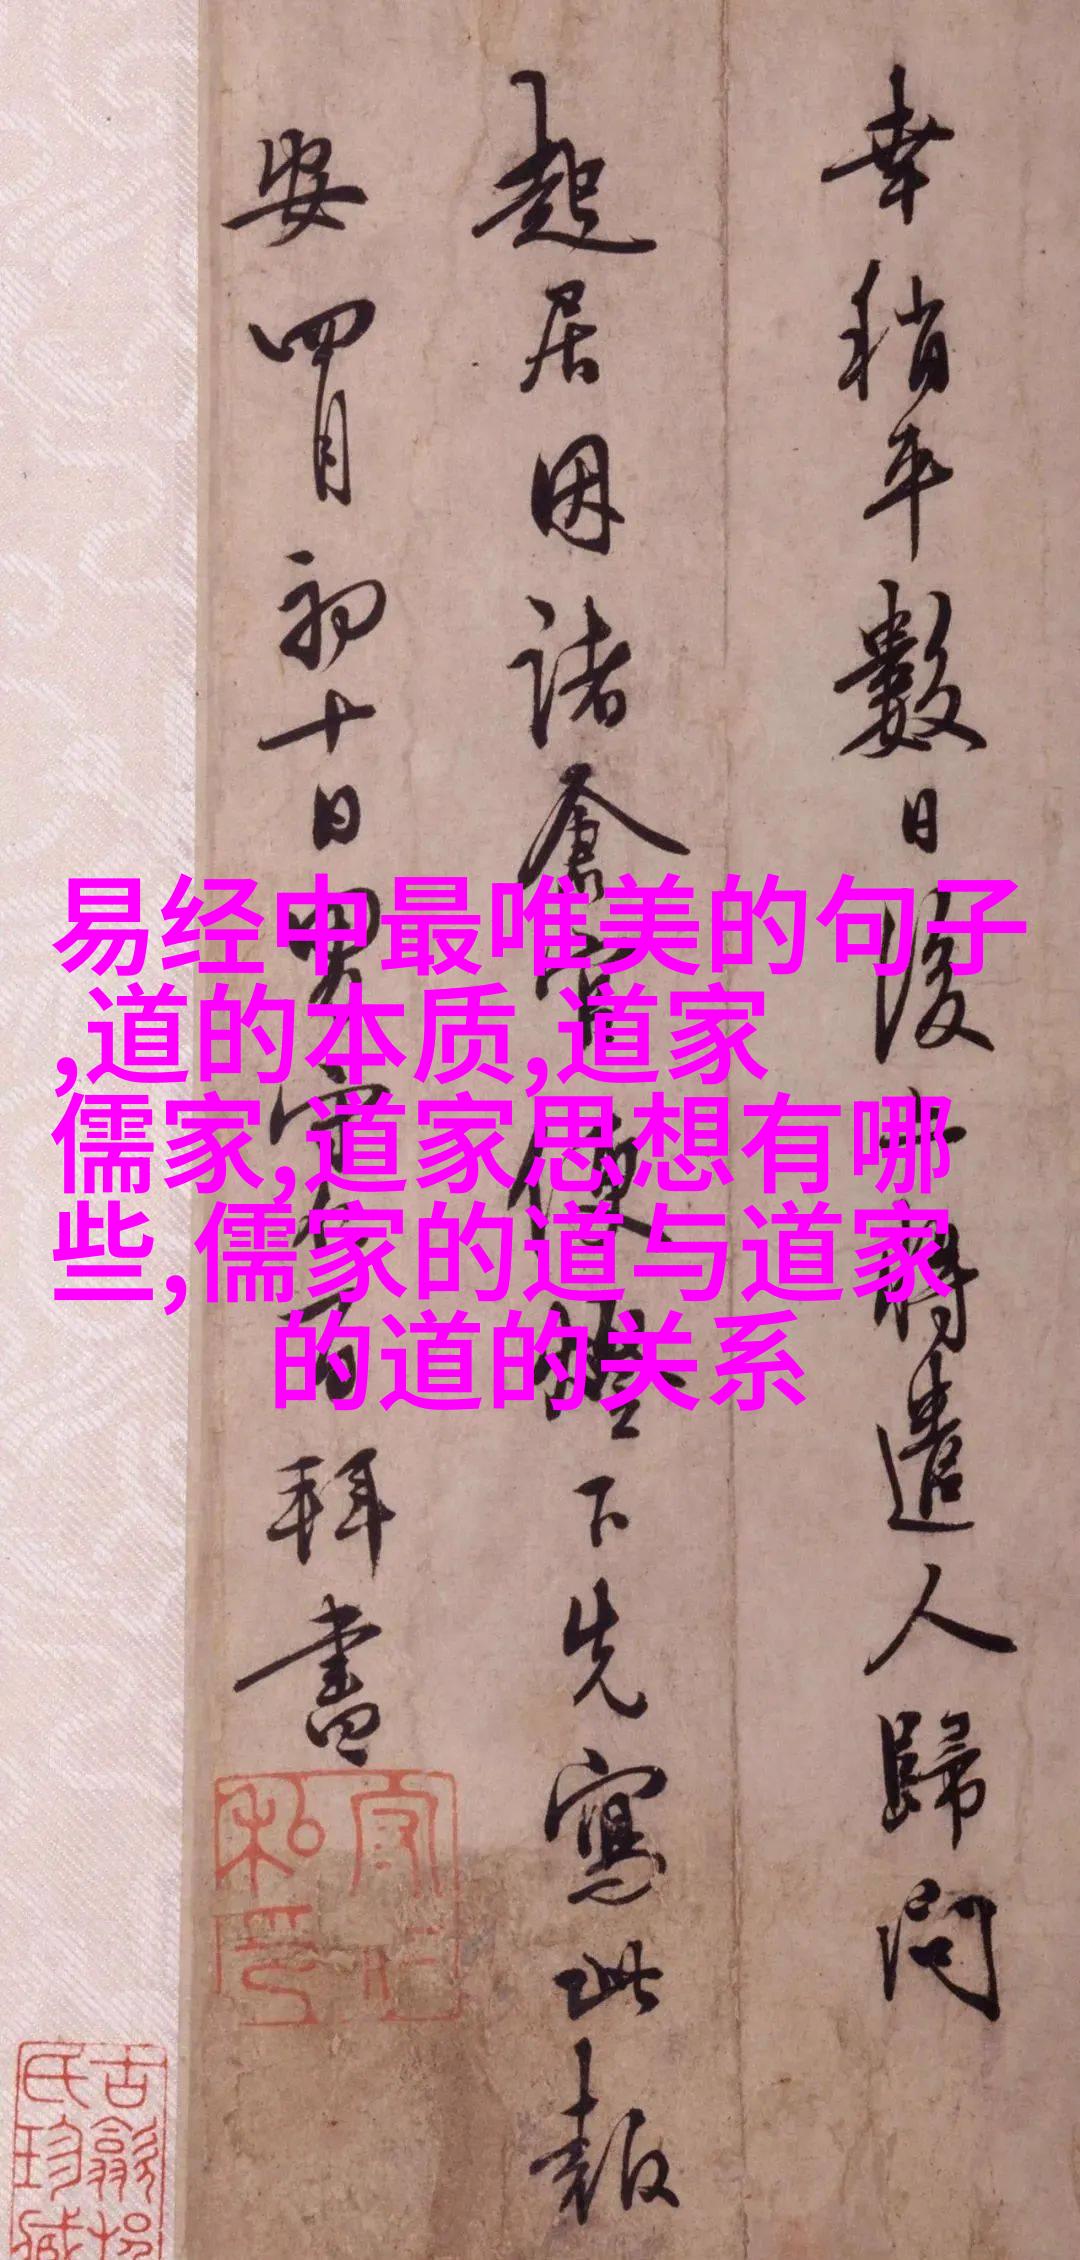 幸稍平數日後將遣人歸問
起居因諸便燈下先寫此報
安四月初十日男守百拜書
易经中最唯美的句子
,道的本质,道家
儒家,道家思想有哪
些,儒家的道与道家
的道的关系